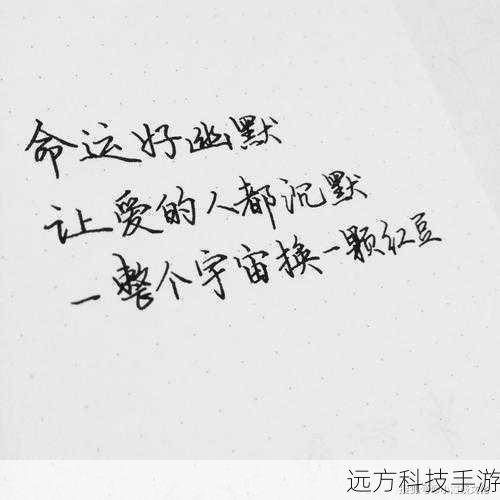 命运好幽默
让爱的人都沉默
一整个宇宙换一颗红豆
远方科技手游